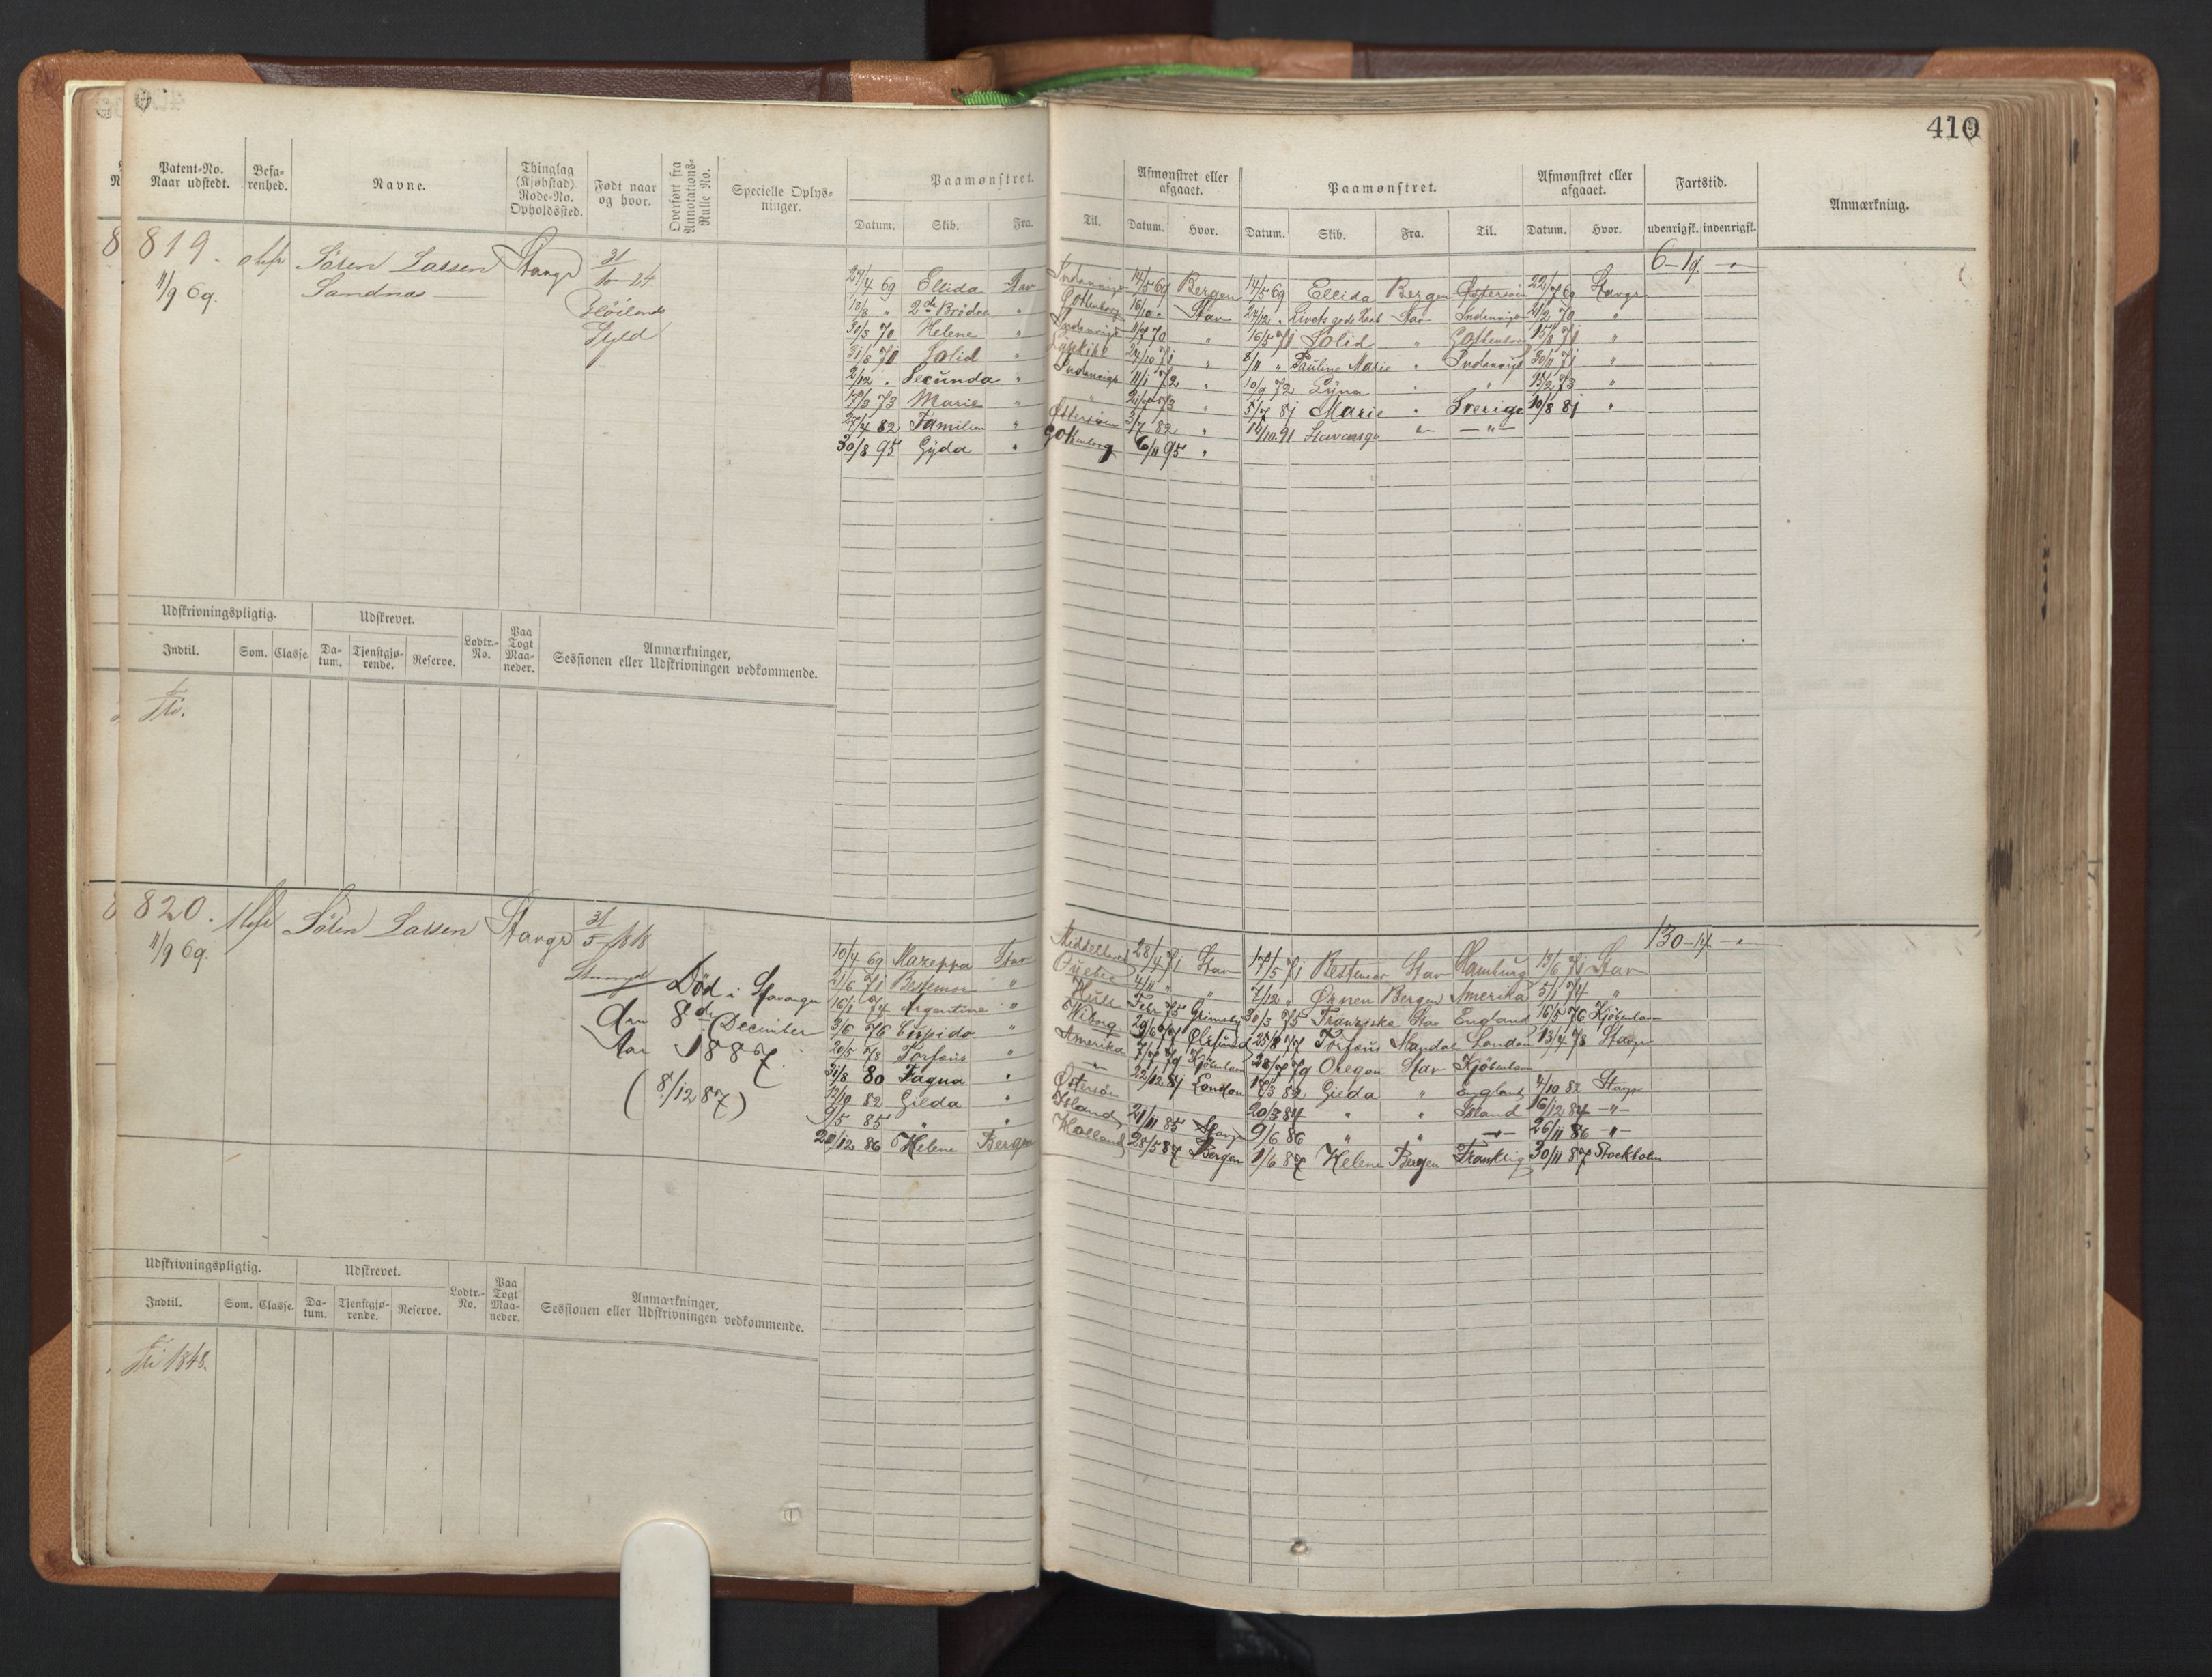 410
Patent-No. Naar udstedt. Befarenhed. Navne. Thinglag (Kjøbstad) Rode-No. Opholdssted. Født naar og hvor. Overført fra Annotations-Rulle No. Specielle Oplysninger. Paamønstret. Afmønstret eller afgaaet. Paamønstret. Afmønstret eller afgaaet. Fartstid. Anmærkning.
Datum. Skib. Fra. Til. Datum. Hvor. Datum. Skib. Fra. Til. Datum. Hvor. udenrigsk. indenrigsk.
819. Sören Larsen Stavgr 31
11/9 69. Sandnæs 10-24
6-19.
27/4 69 Ellida Stav Indenrigs 14/5 69 Bergen 14/5 69 Ellida Bergen Østersöen 22/7 69 Stavgr
18/8 " 2de Brödre " Gottenborg 16/10 " Stav 24/12 " Livets gode Haab Stav Indenrigs 21/2 70 "
30/3 70 Helene " Indenrigs 11/7 70 " 16/5 71 Solid " Gottenborg 15/8 71 "
31/8 71 Solid " Lysekihl 24/10 71 " 8/11 " Pauline Marie " Indenrigs 30/11 71 "
2/12 " Secunda " Indenrigs 11/1 72 " 10/9 72 Lÿna " " 15/2 73 "
17/3 73 Marie " " 21/7 73 " 5/7 81 Marie " Sverige 10/8 81 "
27/4 82 Familien " Østersöen 3/7 82 " 16/10 91 Stavanger " —"—
30/8 95 Gyda " Gottenborg 6/11 95 "
Udskrivningspligtig. Udskrevet. Lodtr.-No. Paa Togt Maaneder. Anmærkninger, Sessionen eller Udskrivningen vedkommende.
Indtil. Som. Classe. Datum. Tjenstgjørende. Reserve.
820. Sören Larsen Stavgr 31
11/9 69. 5-1818
130-14.
10/4 69 Mazeppa Stav Middelhavet 28/4 71 Stav 17/5 71 Bestemor Stav Hamburg 13/6 71 Stav
21/6 71 Bestemor " Quebec 4/11 " " 7/12 " Örnen Bergen Amerika 5/1 74 "
16/1 74 Argentine " Hull Febr 75 Grimsby 30/3 75 Franziska Stav England 16/5 76 Kjöbenhavn
3/6 76 Cupido " Wiborg 29/6 77 25/8 77 Torfæus Mandal London 13/4 78 Stavgr
20/5 78 Torfæus " Amerika 7/7 79 Kjöbenhavn 28/7 79 Oregon Stav Kjöbenhavn
31/8 80 Fagna " —"— 22/12 81 London 18/3 82 Gilda " England 4/10 82 Stavgr
12/10 82 Gilda " Östersöen 20/3 84 " " Island 16/12 84 —"—
9/5 85 " " Island 21/11 85 Stavgr 9/6 86 " " —"— 26/11 86 —"—
20/12 86 Helene Bergen Holland 28/5 87 Bergen 1/6 87 Helene Bergen Frankrig 30/11 87 Stockholm
Død i Stavanger
den 8de December
Aar 1887.
(8/12 87)
Udskrivningspligtig. Udskrevet. Lodtr.-No. Paa Togt Maaneder. Anmærkninger, Sessionen eller Udskrivningen vedkommende.
Indtil. Som. Classe. Datum. Tjenstgjørende. Reserve.
1848.